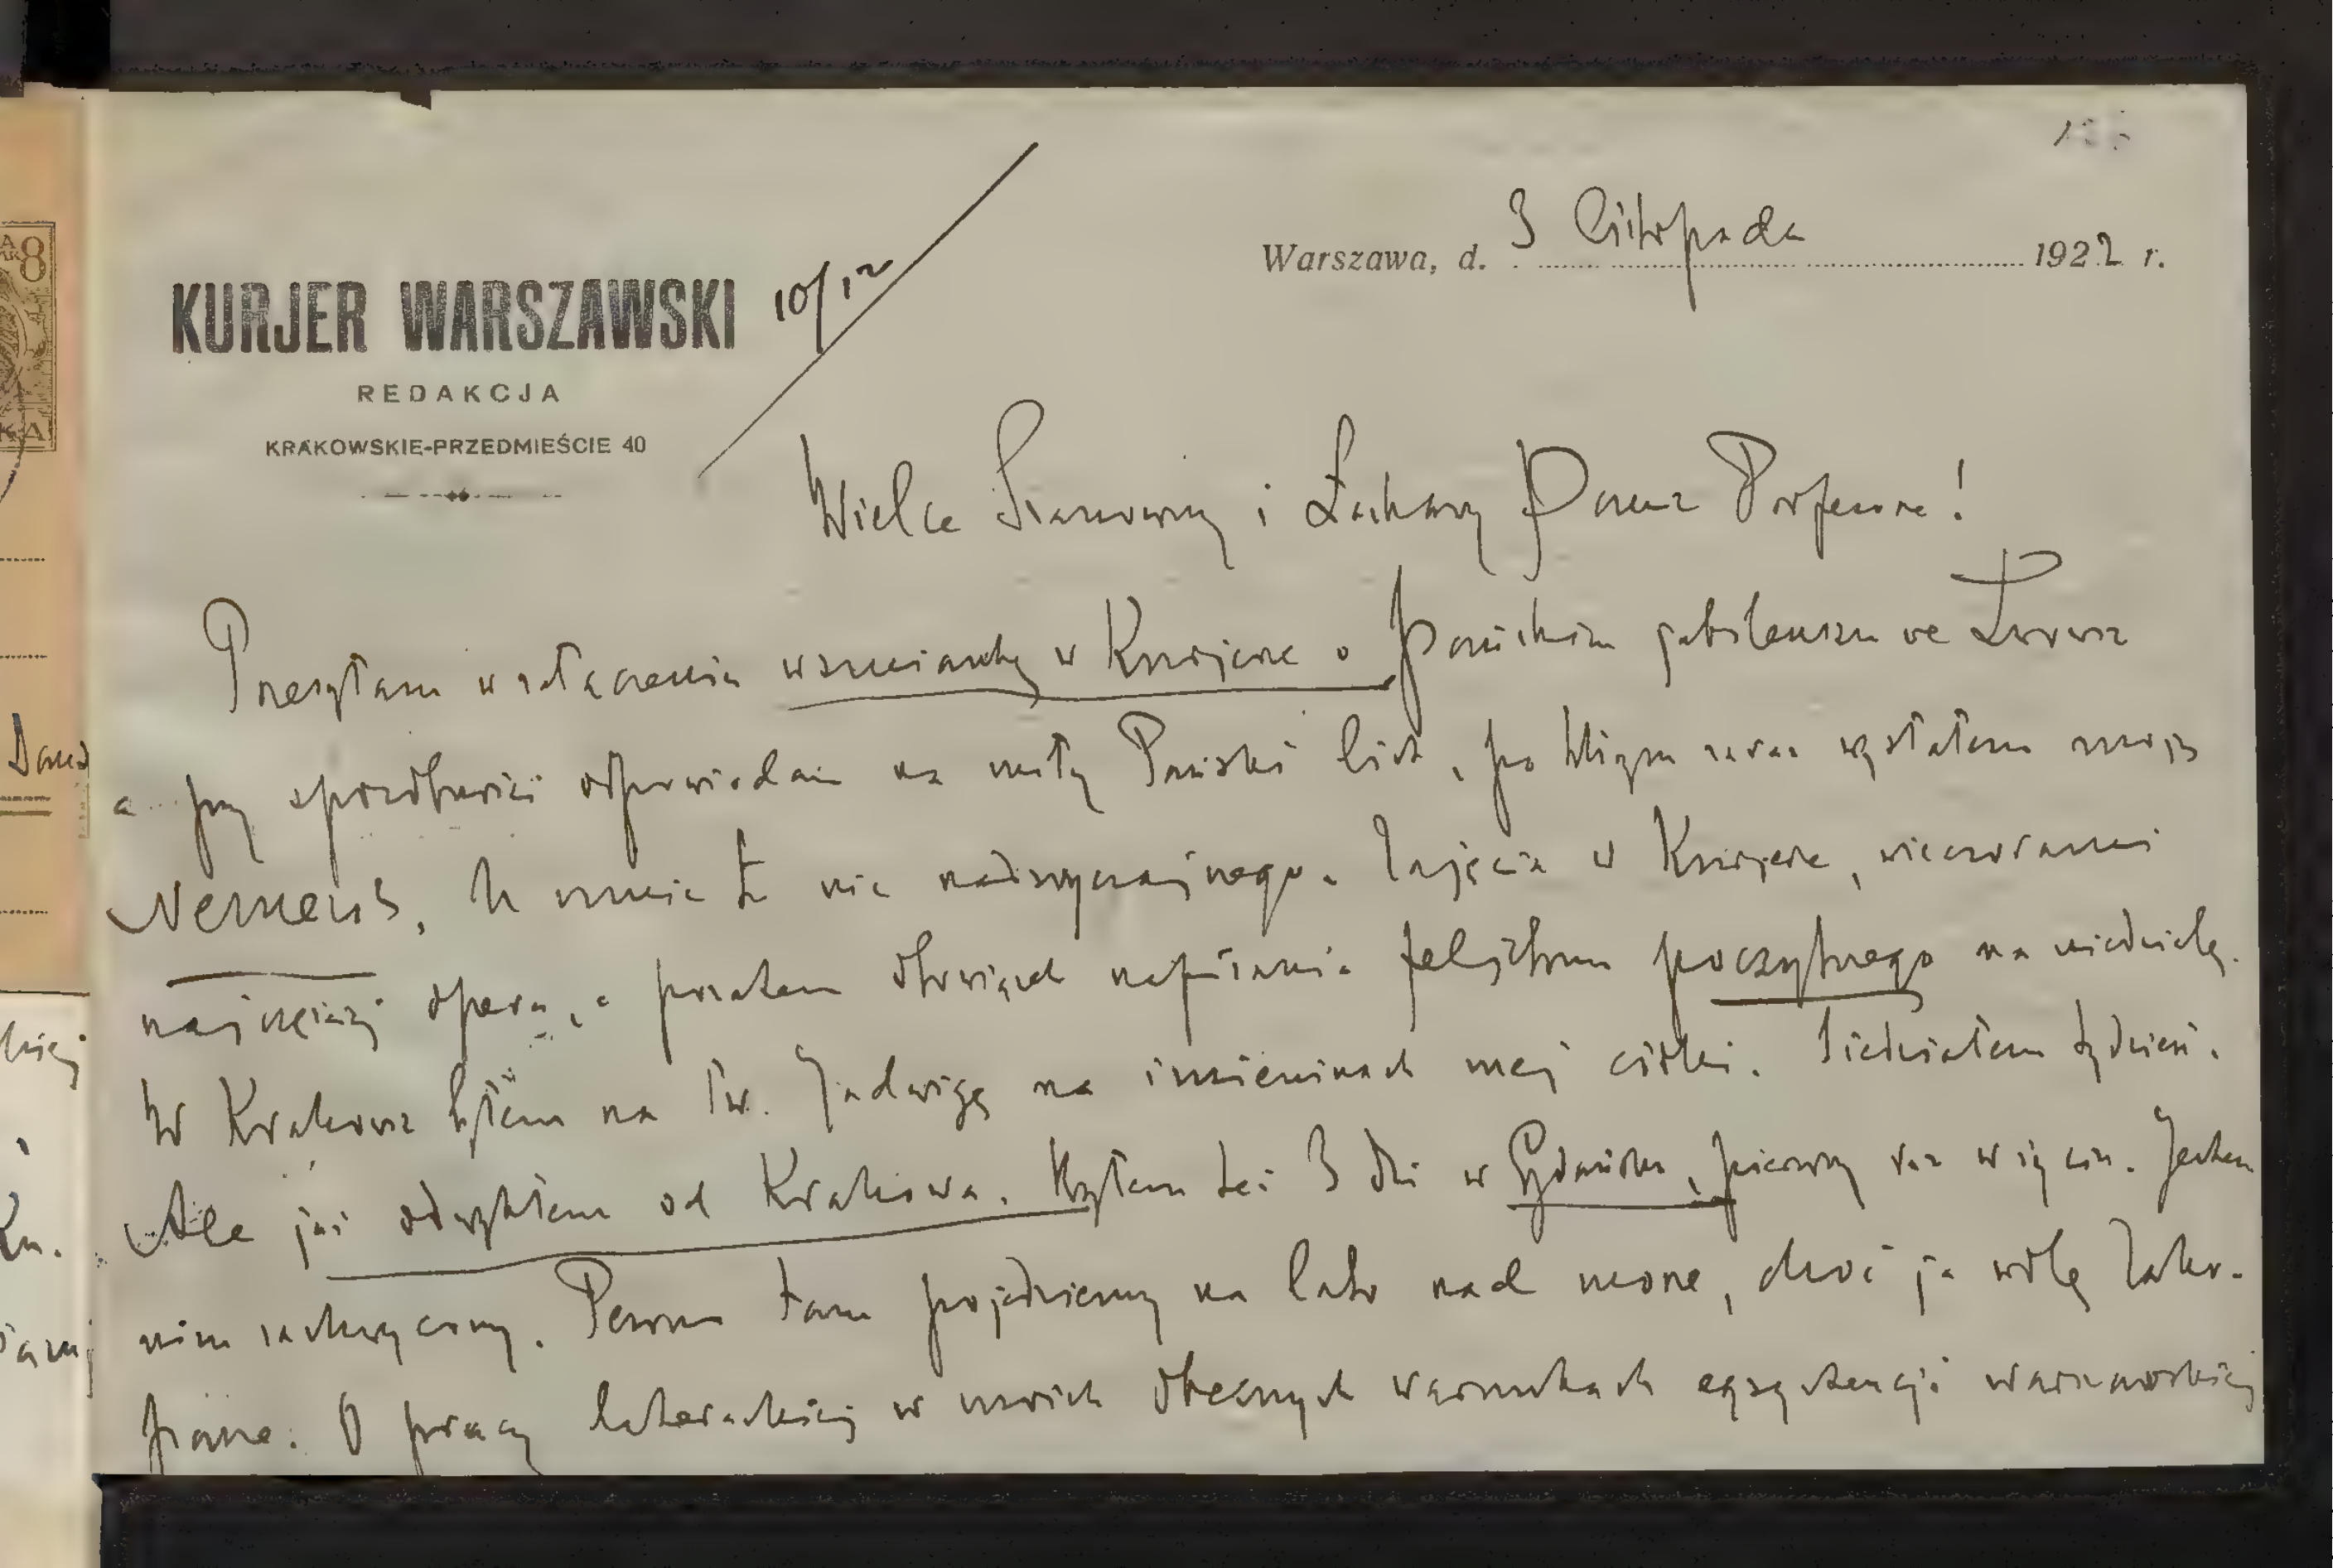 135
Warszawa, d. 3 listopada 1922 r.
KURJER WARSZAWSKI
10/12
REDAKCJA
KRAKOWSKIE-PRZEDMIEŚCIE 40
Wielce Szanowny i Łaskawy Panie Profesorze!
Przesyłam w załączeniu wzmiankę w Kurjerze o Pańskim jubileuszu we Lwowie
a przy sposobności odpowiadam na miły Pański list, po którym zaraz wysłałem moją
Nemezis. U mnie tu nic nadzwyczajnego. Zajęcia w Kurjerze, wieczorami
najczęściej opera, a pozatem obowiązek napisania feljetonu poczytnego na niedzielę.
W Krakowie byłem na św. Jadwigę na imieninach mej córki. Siedziałem tydzień.
Ale już odwykłem od Krakowa. Byłem też 3 dni w Gdańsku, pierwszy raz w życiu. Jestem
nim zachwycony. Pewno tam pojedziemy na lato nad morze, choć ja wolę Zako-
pane. O pracy literackiej w moich obecnych warunkach egzystencji warszawskiej